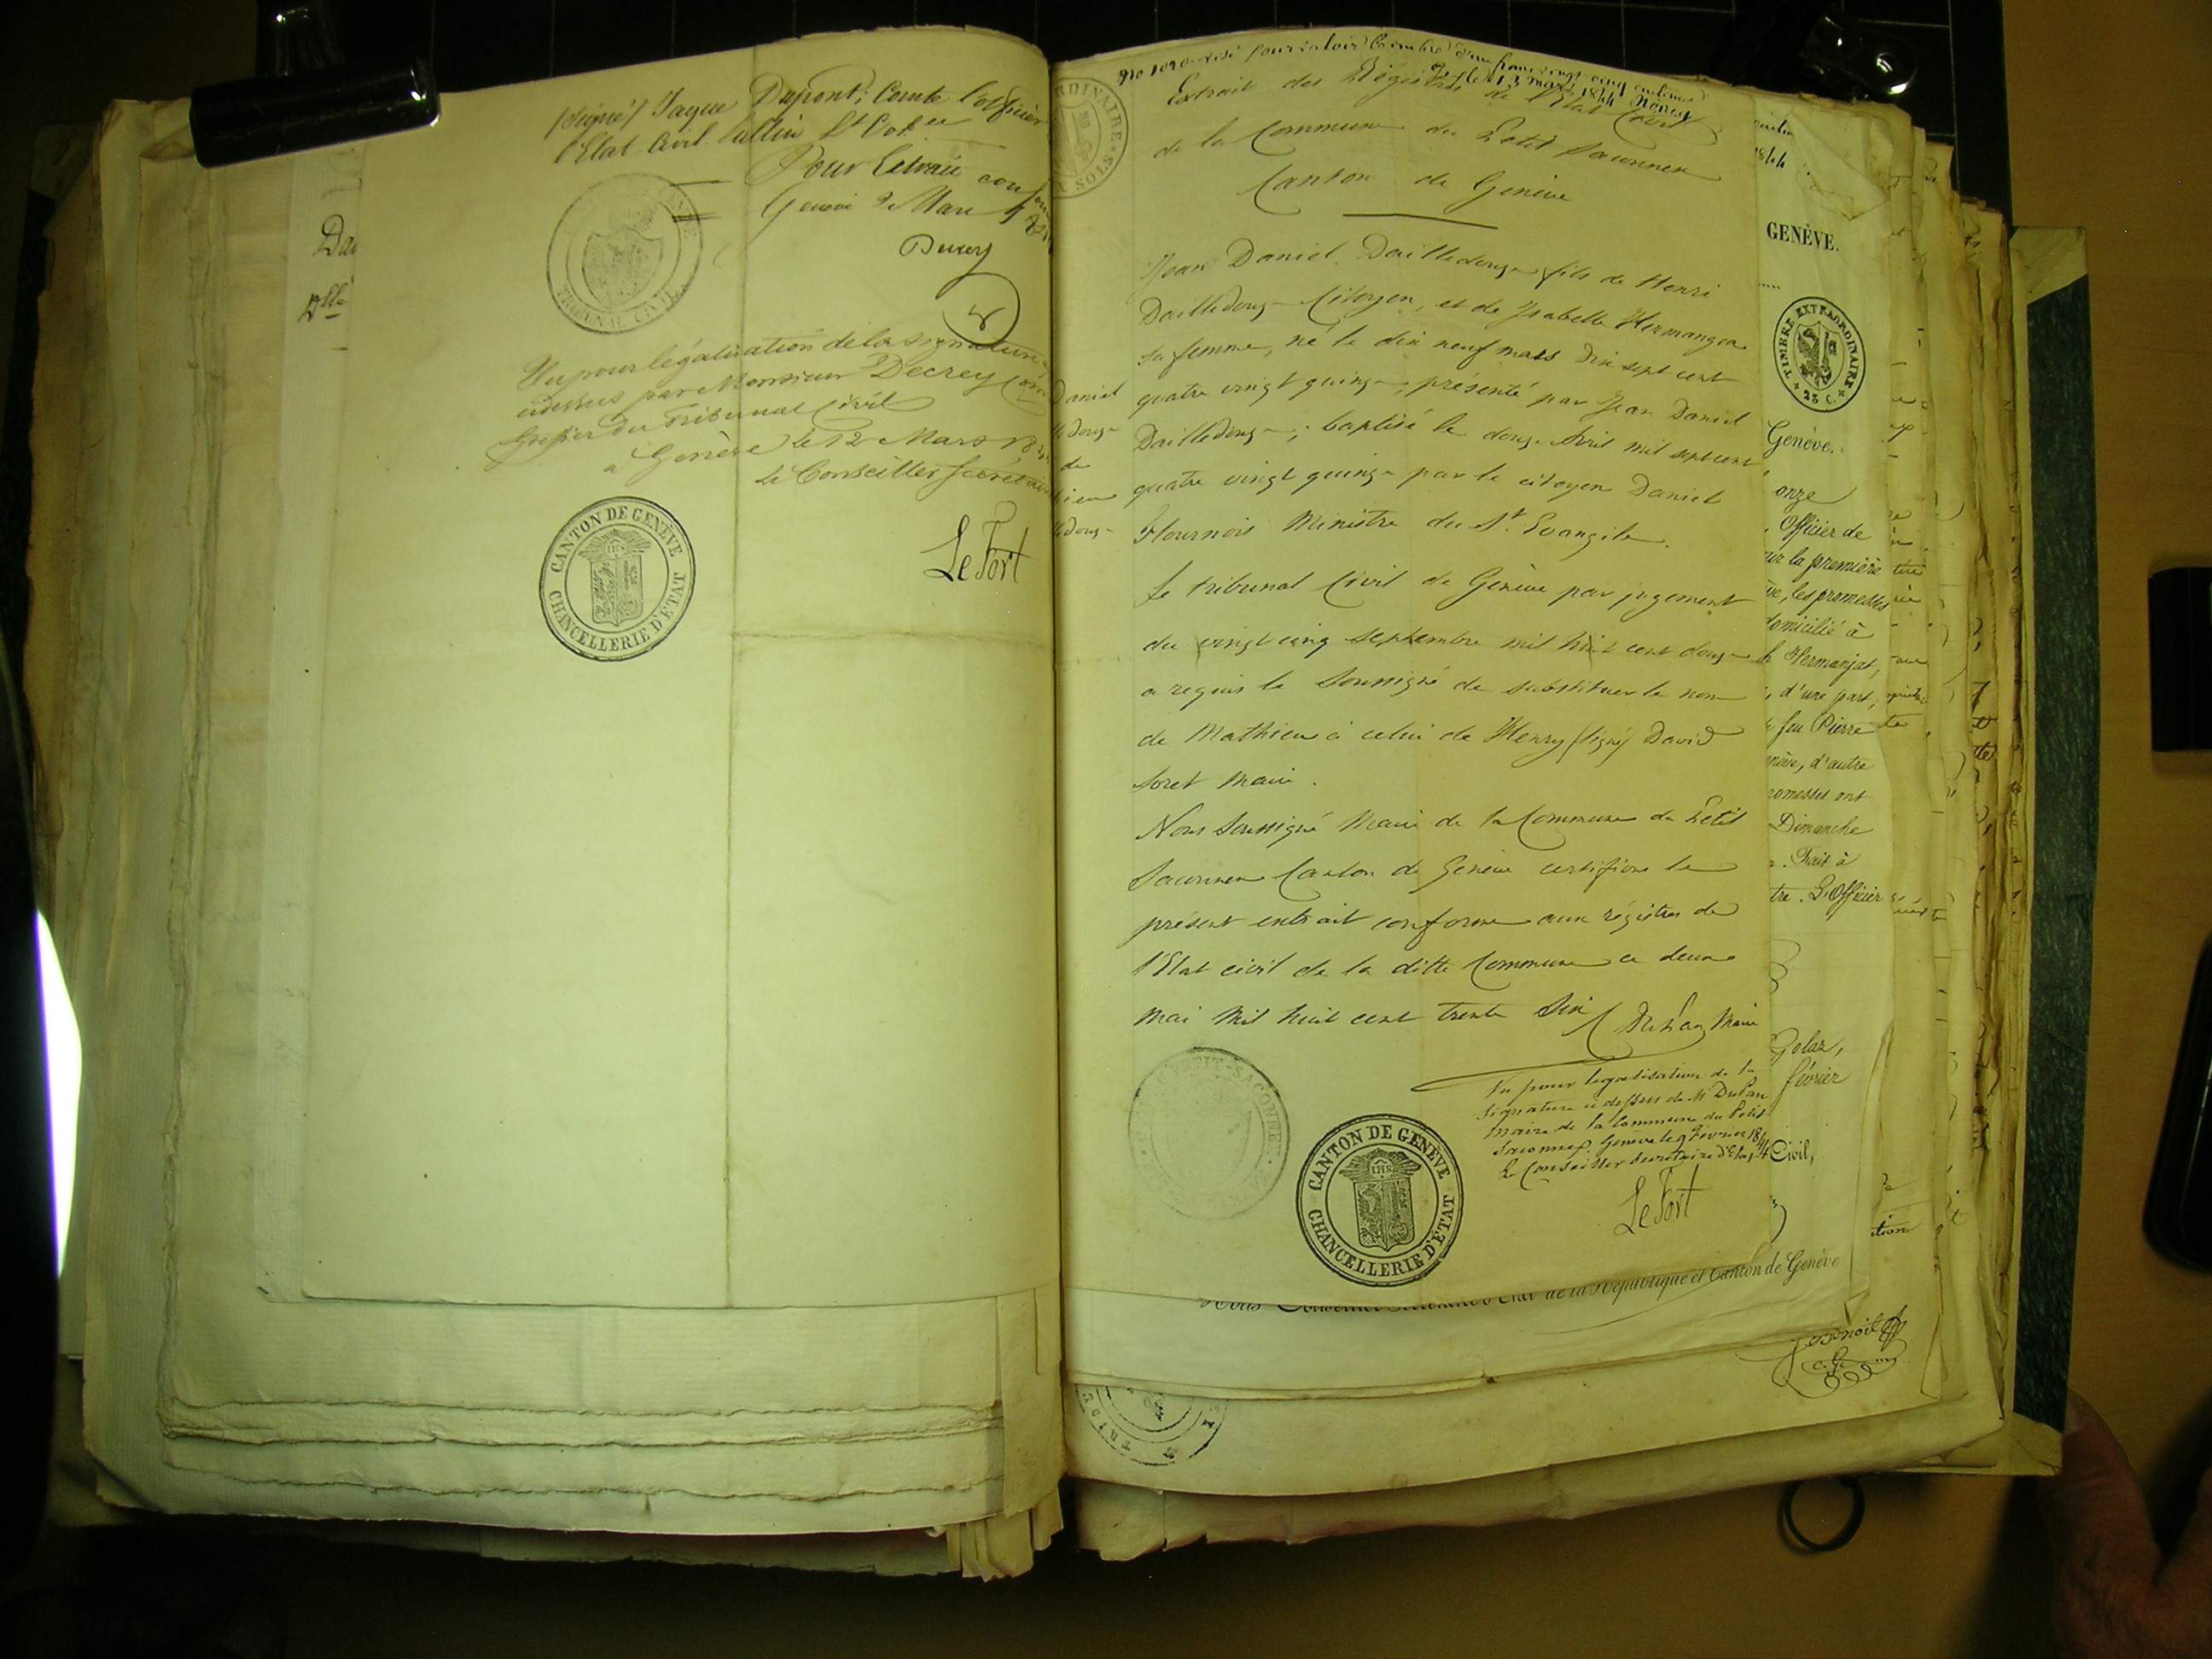 (Signé) Jaque Dupont; Comte l'officier
l'Etat Civil
Pour Extrait
Genève 9 Mars
Decrey
TRIBUNAL CIVIL
Vu pour légalisation de la signature
cidessus par Monsieur Decrey
Greffier du Tribunal Civil
à Genève le 12 Mars
Le Conseiller Secrétaire
Le Fort
CANTON DE GENÈVE
CHANCELLERIE D'ÉTAT
No 1090 visé pour valoir timbre d'un franc vingt cinq centimes
le 13 mars 1844
Extrait des Régistres de l'Etat Civil
de la Commune du Petit Saconnex
Canton de Genève
Daniel
de
Jean Daniel Dailledouze fils de Henri
Dailledouze Citoyen, et de Isabelle Hermangea
sa femme, né le dix neuf mars dix sept cent
quatre vingt quinze; présenté par Jean Daniel
Dailledouze; baptisé le douze Avril mil sept cent
quatre vingt quinze par le citoyen Daniel
Flournois Ministre du St. Evangile.
Le tribunal Civil de Genève par jugement
du vingt cinq Septembre mil huit cent douze
a requis le Soussigné de substituer le nom
de Mathieu à celui de Henry (signé) David
Soret Maire.
Nous Soussigné Maire de la Commune du Petit
Saconnex Canton de Genève certifions le
présent extrait conforme aux régistres de
l'Etat civil de la ditte Commune ce deux
mai Mil huit cent trente Six
DuPan Maire
PETIT-SACONNEX
Vu pour légalisation de la
signature ci dessus de Mr DuPan
maire de la Commune du Petit
Saconnex. Genève le 9 Février 1844
Le Conseiller Secrétaire d'Etat
Le Fort
CANTON DE GENÈVE
CHANCELLERIE D'ÉTAT
GENÈVE.
TIMBRE EXTRAORDINAIRE
25 C.
Genève.
onze
Officier de
sur la première
les promesses
domicilié à
Hermanjat,
d'une part,
feu Pierre
d'autre
promesses ont
Dimanche
Fait à
L'Officier
Golaz,
février
Civil,
de la République et Canton de Genève